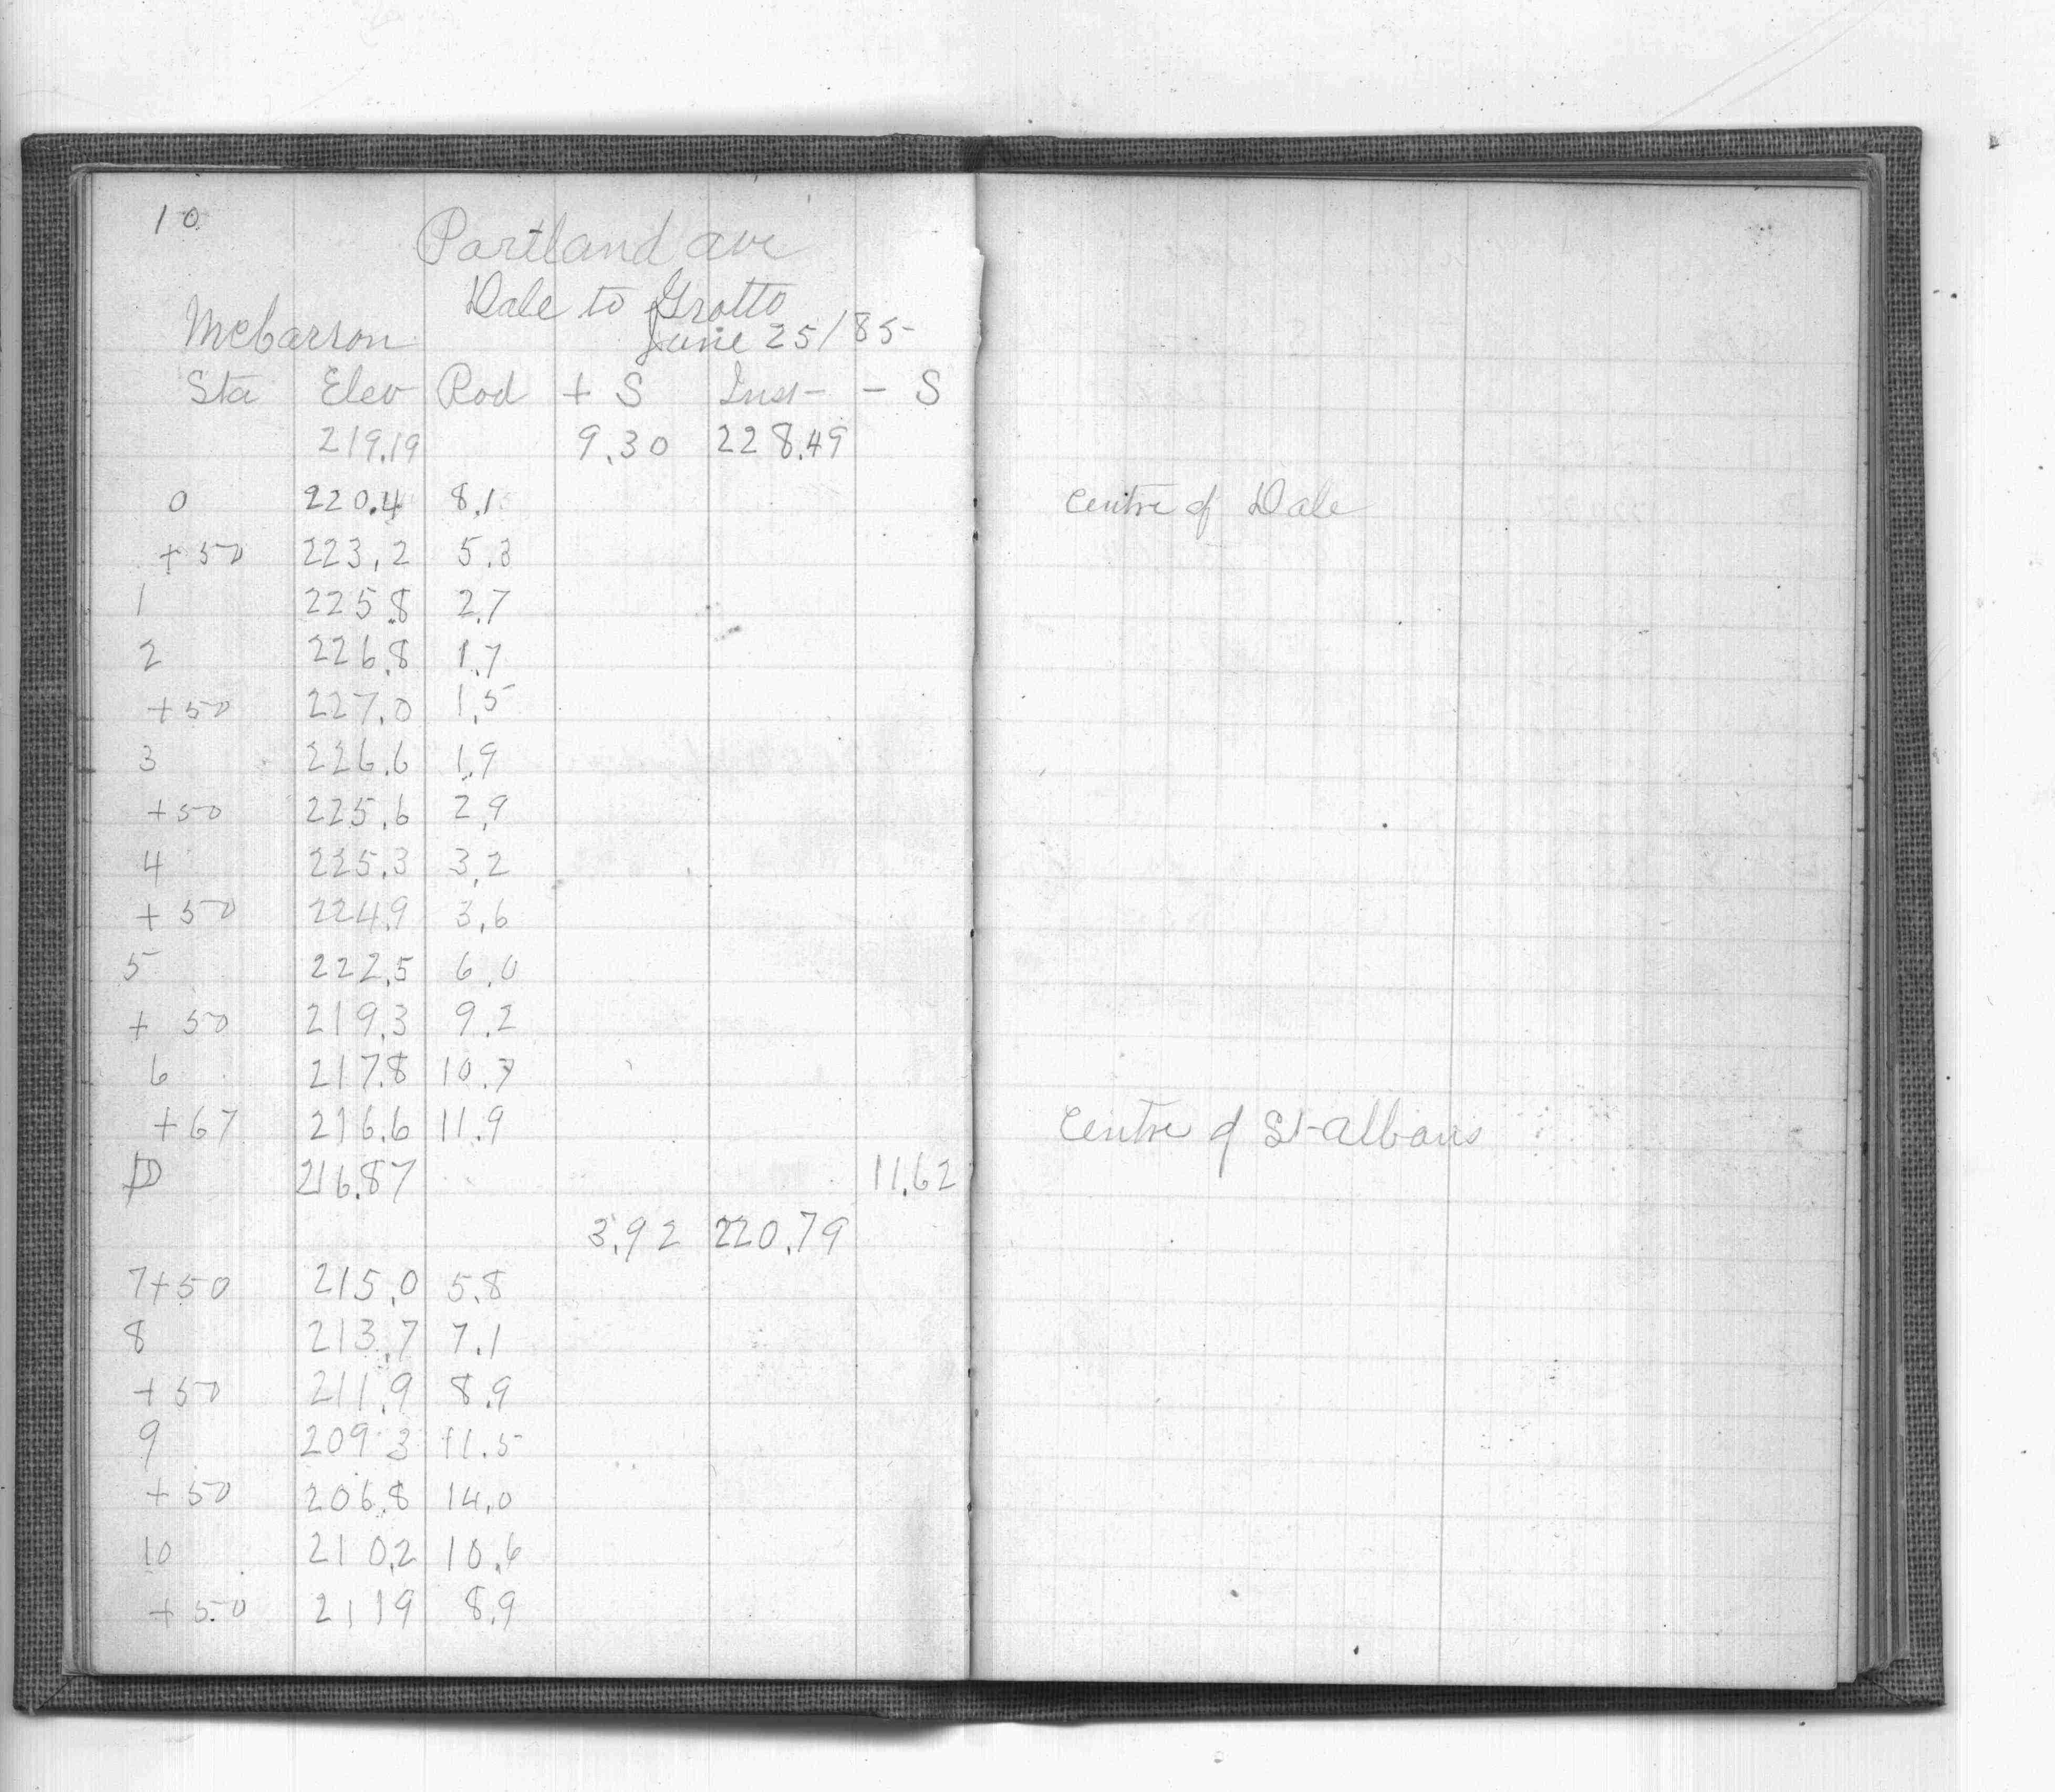 10
Portland ave
Dale to Grotto
McCarron June 25/85
Sta Elev Rod + S Inst - S
219.19 9.30 228.49
0 220.4 8.1 Centre of Dale
+50 223.2 5.3
1 225.8 2.7
2 226.8 1.7
+50 227.0 1.5
3 226.6 1.9
+50 225.6 2.9
4 225.3 3.2
+50 224.9 3.6
5 222.5 6.0
+50 219.3 9.2
6 217.8 10.7
+67 216.6 11.9 Centre of St-albans
216.87 11.62
3.92 220.79
7+50 215.0 5.8
8 213.7 7.1
+50 211.9 8.9
9 209.3 11.5
+50 206.8 14.0
10 210.2 10.6
+50 2119 8.9